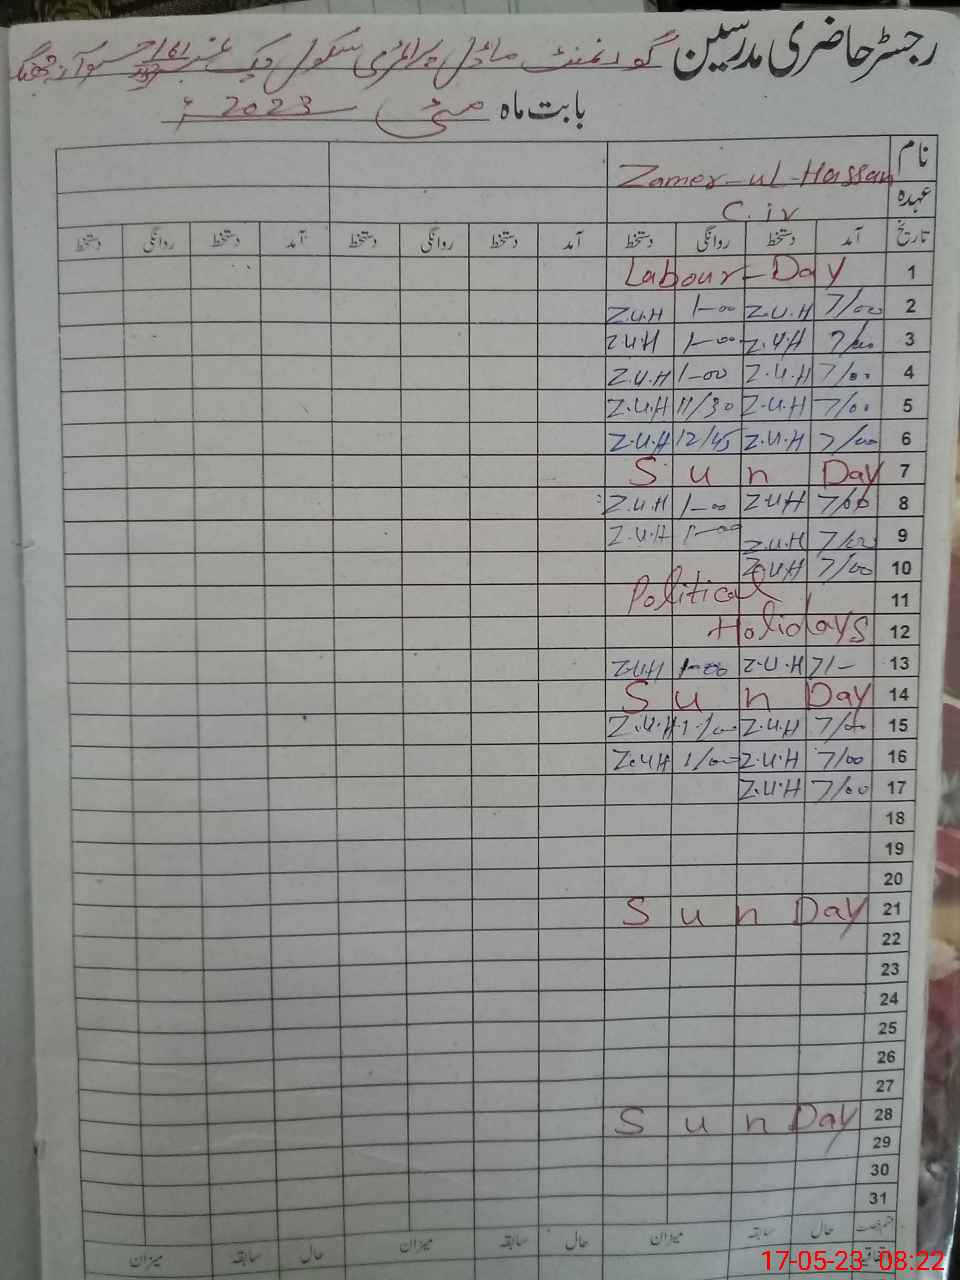 رجسٹر حاضری مدرسین گورنمنٹ ماڈل پرائمری سکول چک نمبر 161
بابت ماہ مئی 2023ء
نام Zamer-ul-Hassan
عہدہ C.iv
تاریخ آمد دستخط روانگی دستخط آمد دستخط روانگی دستخط آمد دستخط روانگی دستخط
1 Labour-Day
2 7/00 Z.U.H 1-00 Z.U.H
3 7/00 Z.U.H 1-00 Z.U.H
4 7/00 Z.U.H 1-00 Z.U.H
5 7/00 Z.U.H 11/30 Z.U.H
6 7/00 Z.U.H 12/45 Z.U.H
7 Sun Day
8 7/00 Z.U.H 1-00 Z.U.H
9 7/00 Z.U.H 1-00 Z.U.H
10 7/00 Z.U.H
11 Political
12 Holidays
13 7/- Z.U.H 1-00 Z.U.H
14 Sun Day
15 7/00 Z.U.H 1/00 Z.U.H
16 7/00 Z.U.H 1/00 Z.U.H
17 7/00 Z.U.H
18
19
20
21 Sun Day
22
23
24
25
26
27
28 Sun Day
29
30
31
حال سابقہ میزان حال سابقہ میزان حال سابقہ میزان
17-05-23 08:22